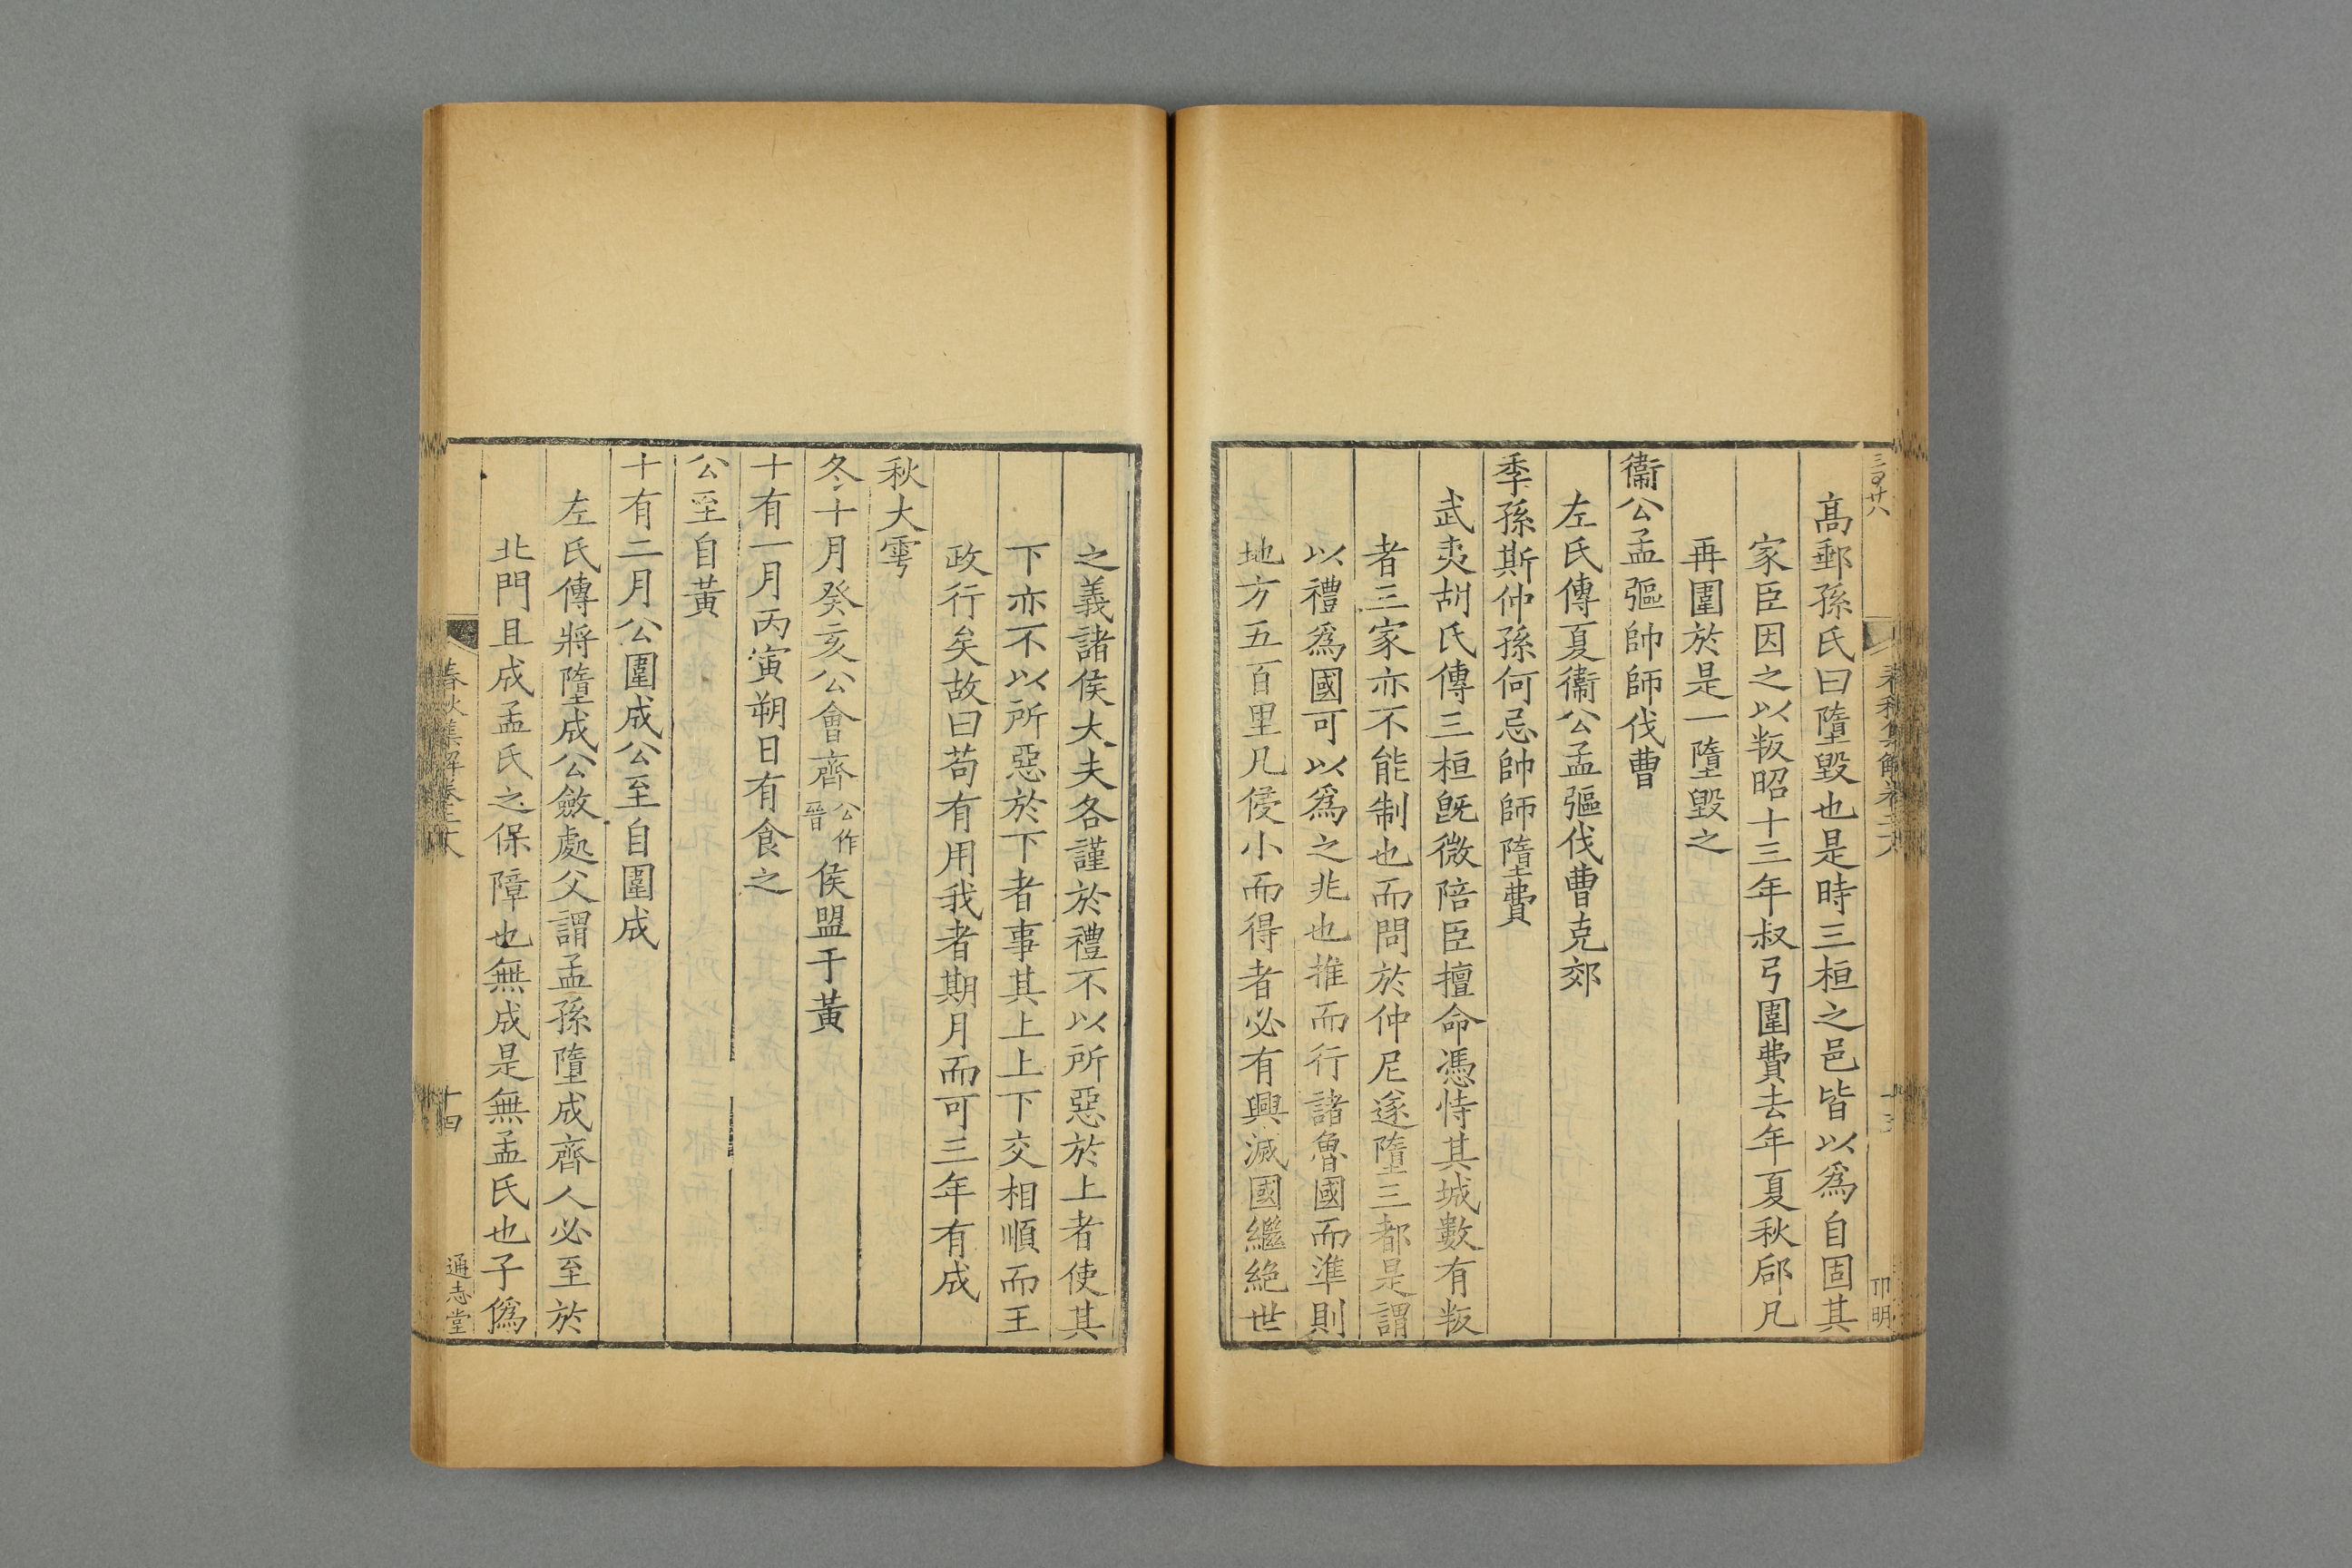 高郵孫氏曰墮毀也是時三桓之邑皆以爲自固其
家臣因之以叛昭十三年叔弓圍費去年夏秋郈凡
再圍於是一墮毀之
衞公孟彄帥師伐曹
左氏傳夏衞公孟彄伐曹克郊
季孫斯仲孫何忌帥師墮費
武夷胡氏傳三桓旣微陪臣擅命憑恃其城數有叛
者三家亦不能制也而問於仲尼遂墮三都是謂
以禮爲國可以爲之兆也推而行諸魯國而準則
地方五百里凡侵小而得者必有興滅國繼絕世
之義諸侯大夫各謹於禮不以所惡於上者使其
下亦不以所惡於下者事其上上下交相順而王
政行矣故曰苟有用我者期月而可三年有成
秋大雩
冬十月癸亥公會齊公作晉侯盟于黃
十有一月丙寅朔日有食之
公至自黃
十有二月公圍成公至自圍成
左氏傳將墮成公斂處父謂孟孫墮成齊人必至於
北門且成孟氏之保障也無成是無孟氏也子僞
春秋集解卷二六
十四
通志堂